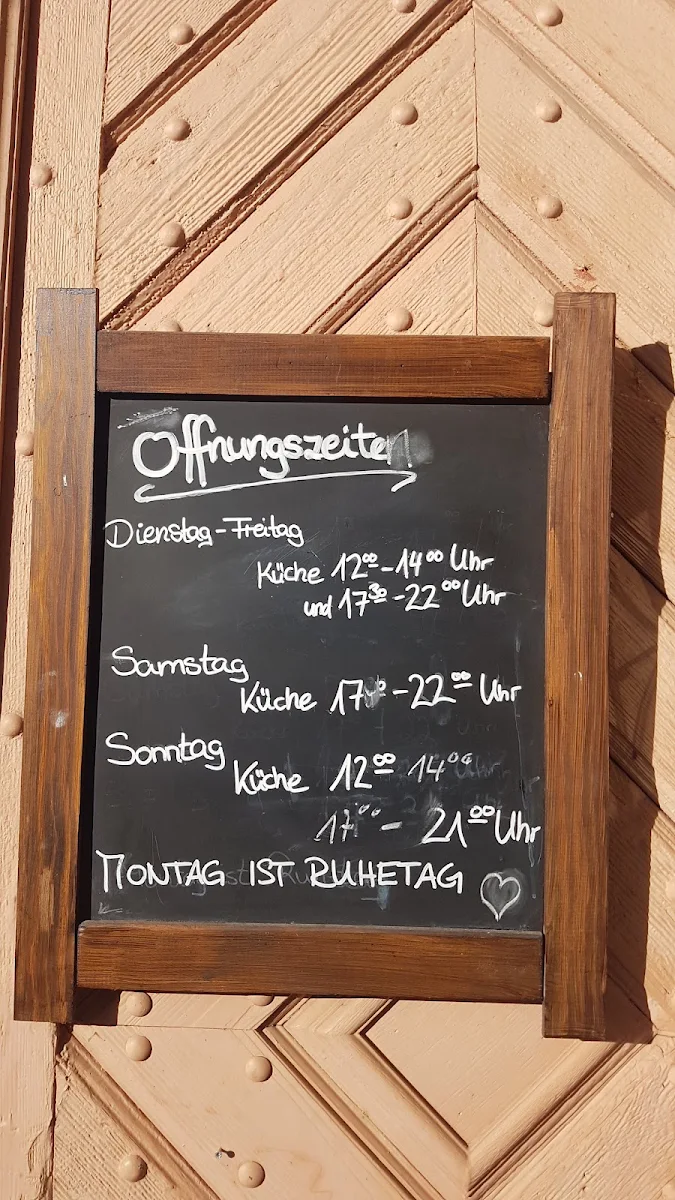 Öffnungszeiten
Dienstag-Freitag
Küche 12⁰⁰-14⁰⁰ Uhr
und 17³⁰-22⁰⁰ Uhr
Samstag
Küche 17 -22⁰⁰ Uhr
Sonntag
Küche 12⁰⁰ 14⁰⁰
17⁰⁰ - 21⁰⁰ Uhr
MONTAG IST RUHETAG ♡